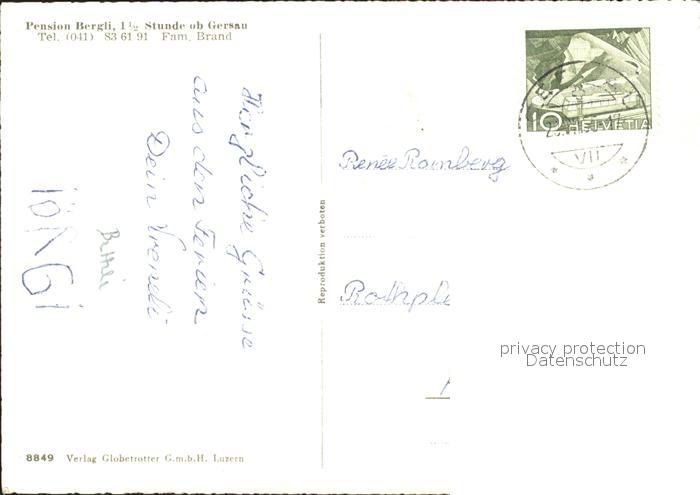 Pension Bergli, 1½ Stunde ob Gersau
Tel. (041) 83 61 91 Fam. Brand
Herzliche Grüsse
aus den Ferien
Dein Vreneli
Bethli
Reproduktion verboten
10 HELVETIA
VII
Renée Ramberg
Rothple
privacy protection
Datenschutz
8849 Verlag Globetrotter G.m.b.H. Luzern